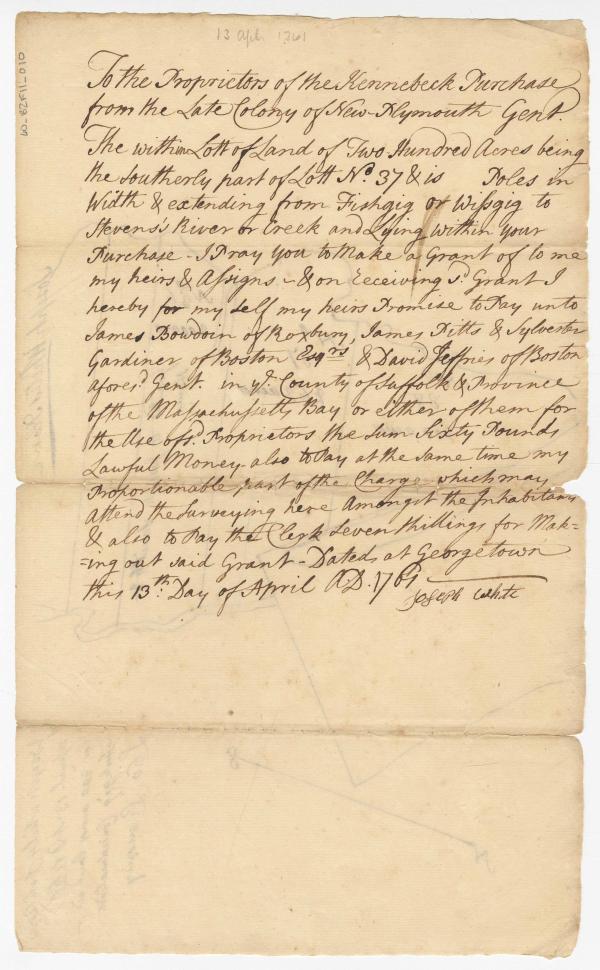 13 Apl. 1761
60-82F11-010
To the Proprietors of the Kennebeck Purchase
from the Late Colony of New-Plymouth Gent.
The within Lott of Land of Two Hundred Acres being
the Southerly part of Lott No. 37 & is Poles in
Width & extending from Fishgig or Wissgig to
Stevens's River or Creek and Lying within your
Purchase - I Pray you to Make a Grant of to me
my heirs & Assigns - & on receiving sd. Grant I
hereby for my self my heirs Promise to Pay unto
James Bowdoin of Roxbury, James Pitts & Sylvester
Gardiner of Boston Esqrs & David Jeffries of Boston
aforesd. Gent. in ye. County of Suffolk & Province
of the Massachusetts Bay or Either of them for
the Use of sd. Proprietors the sum Sixty Pounds
Lawful Money - also to Pay at the Same time my
Proportionable part of the Charge which may
Attend the Surveying here Amongst the Inhabitans
& also to Pay the Clerk Seven Shillings for Mak=
=ing out said Grant - Dated at Georgetown
this 13th: Day of April A.D. 1761
Joseph White